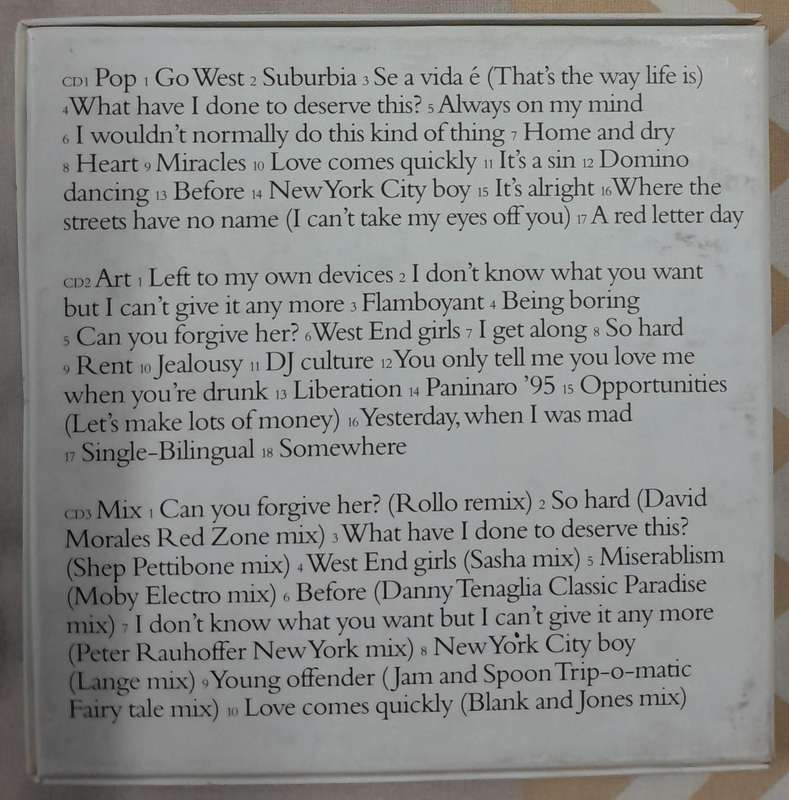 CD1 Pop 1 Go West 2 Suburbia 3 Se a vida é (That's the way life is)
4 What have I done to deserve this? 5 Always on my mind
6 I wouldn't normally do this kind of thing 7 Home and dry
8 Heart 9 Miracles 10 Love comes quickly 11 It's a sin 12 Domino
dancing 13 Before 14 New York City boy 15 It's alright 16 Where the
streets have no name (I can't take my eyes off you) 17 A red letter day
CD2 Art 1 Left to my own devices 2 I don't know what you want
but I can't give it any more 3 Flamboyant 4 Being boring
5 Can you forgive her? 6 West End girls 7 I get along 8 So hard
9 Rent 10 Jealousy 11 DJ culture 12 You only tell me you love me
when you're drunk 13 Liberation 14 Paninaro '95 15 Opportunities
(Let's make lots of money) 16 Yesterday, when I was mad
17 Single-Bilingual 18 Somewhere
CD3 Mix 1 Can you forgive her? (Rollo remix) 2 So hard (David
Morales Red Zone mix) 3 What have I done to deserve this?
(Shep Pettibone mix) 4 West End girls (Sasha mix) 5 Miserablism
(Moby Electro mix) 6 Before (Danny Tenaglia Classic Paradise
mix) 7 I don't know what you want but I can't give it any more
(Peter Rauhoffer New York mix) 8 New York City boy
(Lange mix) 9 Young offender (Jam and Spoon Trip-o-matic
Fairy tale mix) 10 Love comes quickly (Blank and Jones mix)